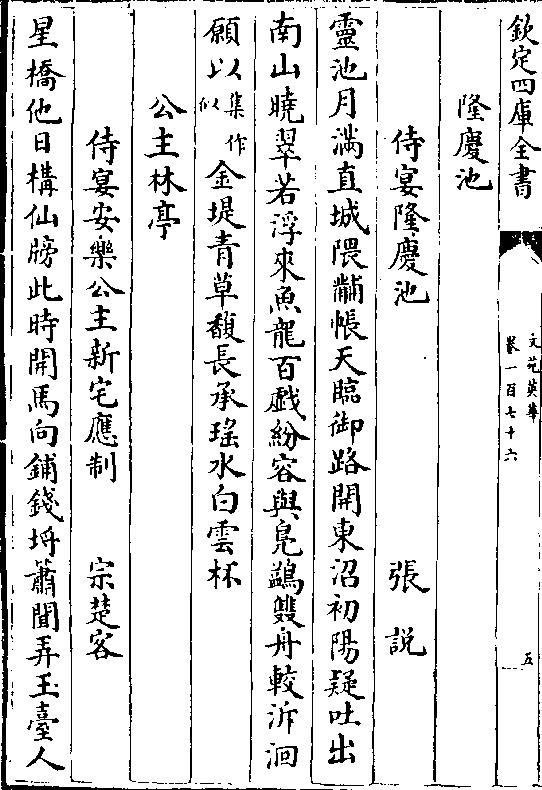 欽定四庫全書
文苑英華
卷一百七十六
五
隆慶池
侍宴隆慶池 張説
靈池月満直城隈黼帳天臨御路開東沼初陽疑吐出
南山曉翠若浮來魚龍百戯紛容與鳧鷁雙舟較泝洄
願以集作似金堤青草馥長承瑤水白雲杯
公主林亭
侍宴安樂公主新宅應制 宗楚客
星橋他日構仙牓此時開馬向鋪錢埓簫聞弄玉臺人